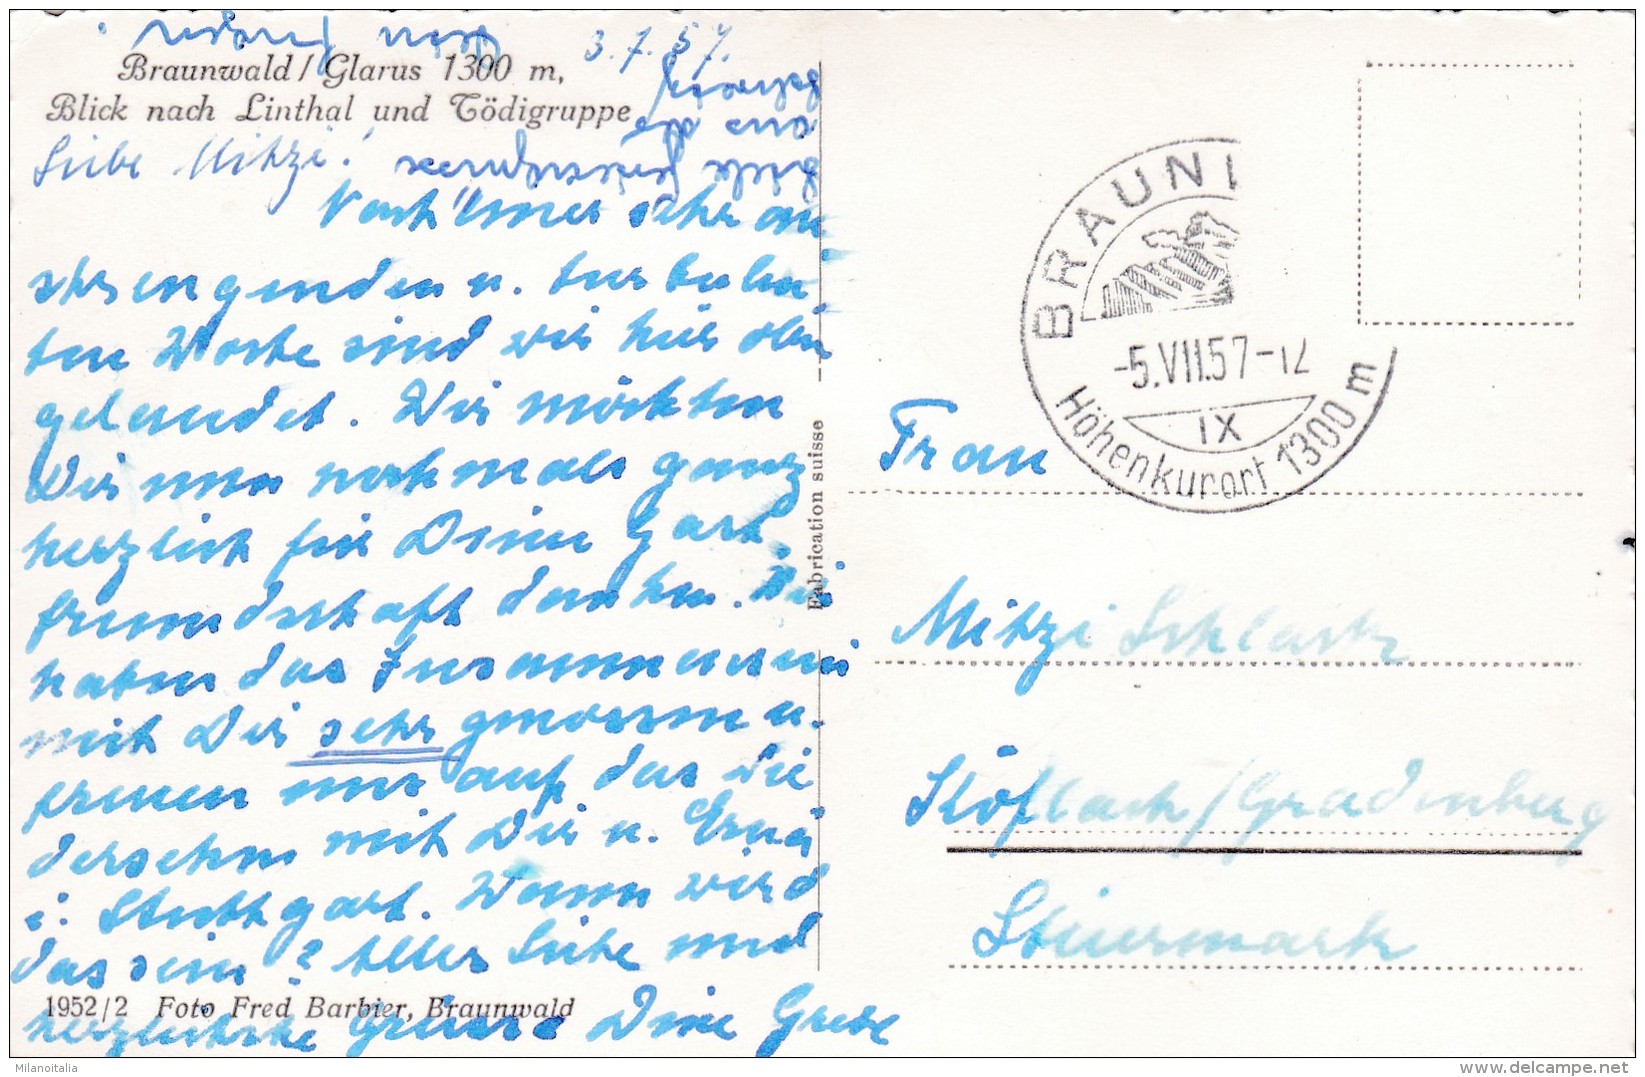 3.7.57.
Braunwald / Glarus 1300 m,
Blick nach Linthal und Tödigruppe
Liebe Mitzi!
Nach einer sehr an
strengenden u. turbulen
ten Woche sind wir hier oben
gelandet. Wir möchten
Dir nun nochmals ganz
herzlich für Deine Gast
freundschaft danken. Wir
haben das Zusammensein
mit Dir sehr genossen u.
freuen uns auf das Wie
dersehn mit Dir u.
i. Stuttgart. Wann wird
das sein? Alles Liebe und
herzlichste Grüsse Deine Grete
1952/2 Foto Fred Barbier, Braunwald
Fabrication suisse
BRAUNW
-5.VII.57-12
IX
Höhenkurort 1300 m
Frau
Mitzi
Köflach/Gradenberg
Steiermark
Milanoitalia
delcampe.net